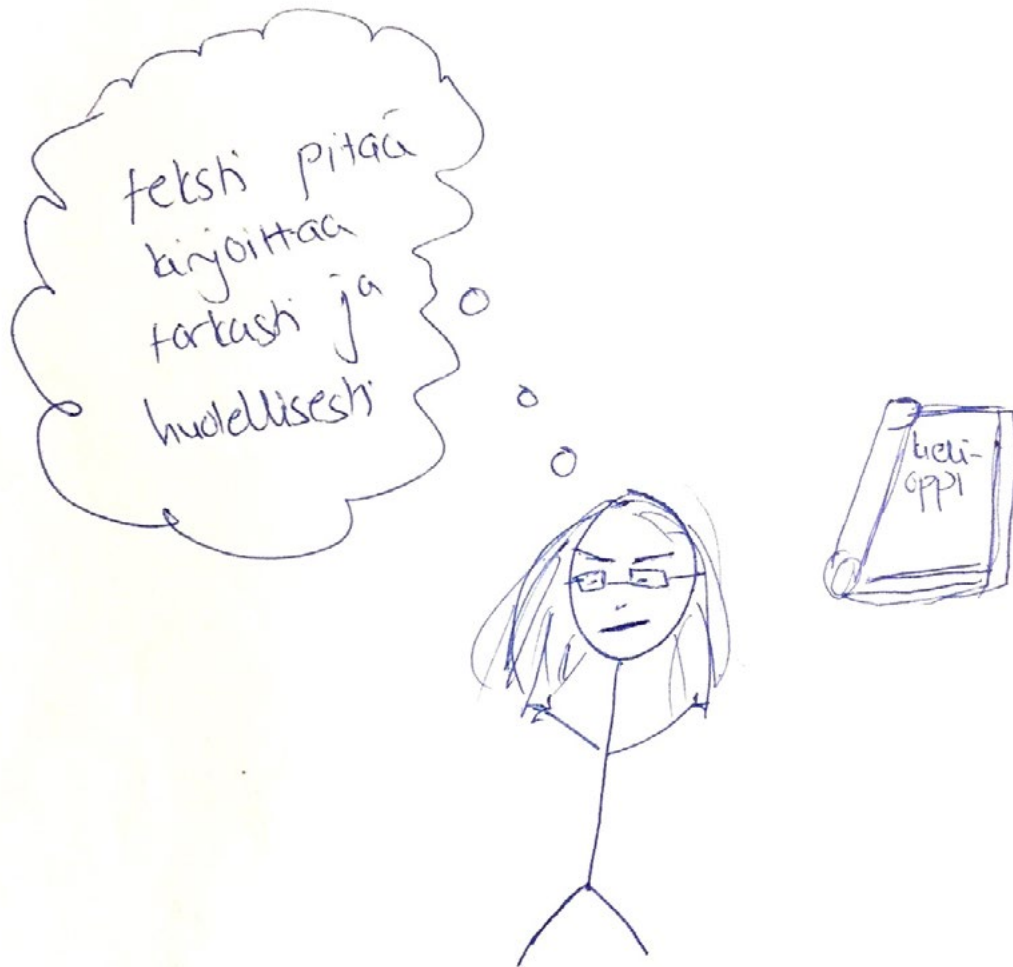 teksti pitää
kirjoittaa
tarkasti ja
huolellisesti
kieli-
oppi